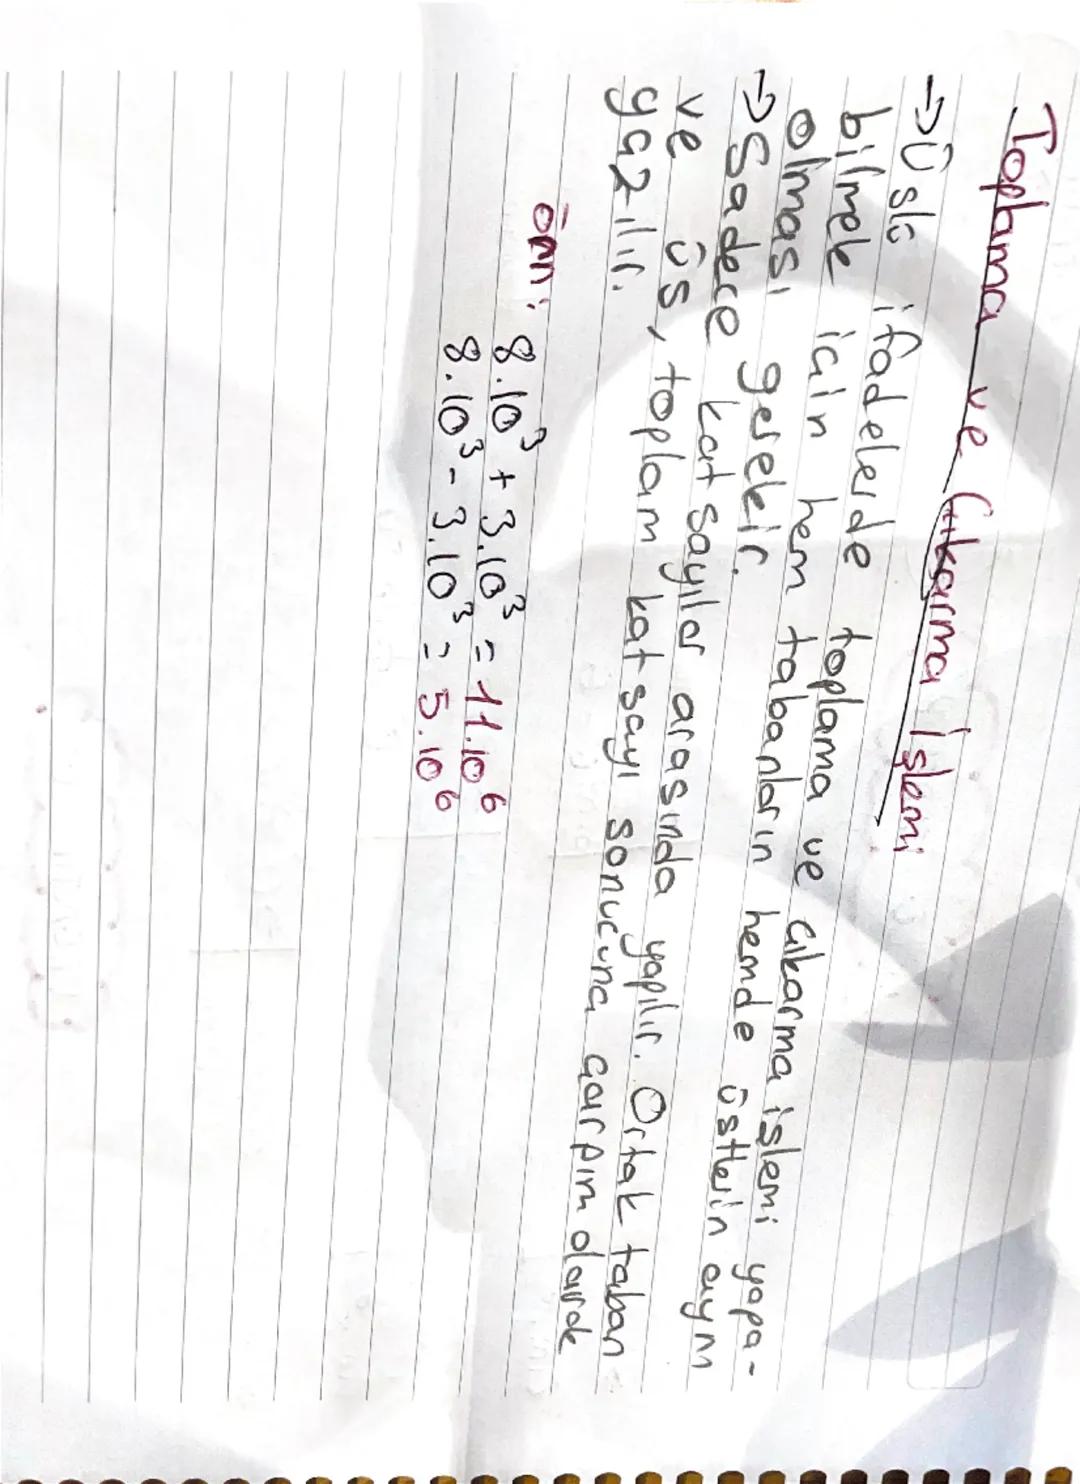 Toplama ve Çıkarma İşlemi
→Üslü ifadelerde toplama ve çıkarma işlemi yapa-
bilmek için hem tabanların hemde üstlerin aynı
olması gerekir.
→Sadece kat sayılar arasında yapılır. Ortak taban
ve üs, toplam kat sayı sonucuna çarpım olarak
yazılır.
örn: 8.10³ + 3.10³ = 11.10⁶
8.10³ - 3.10³ = 5.10⁶